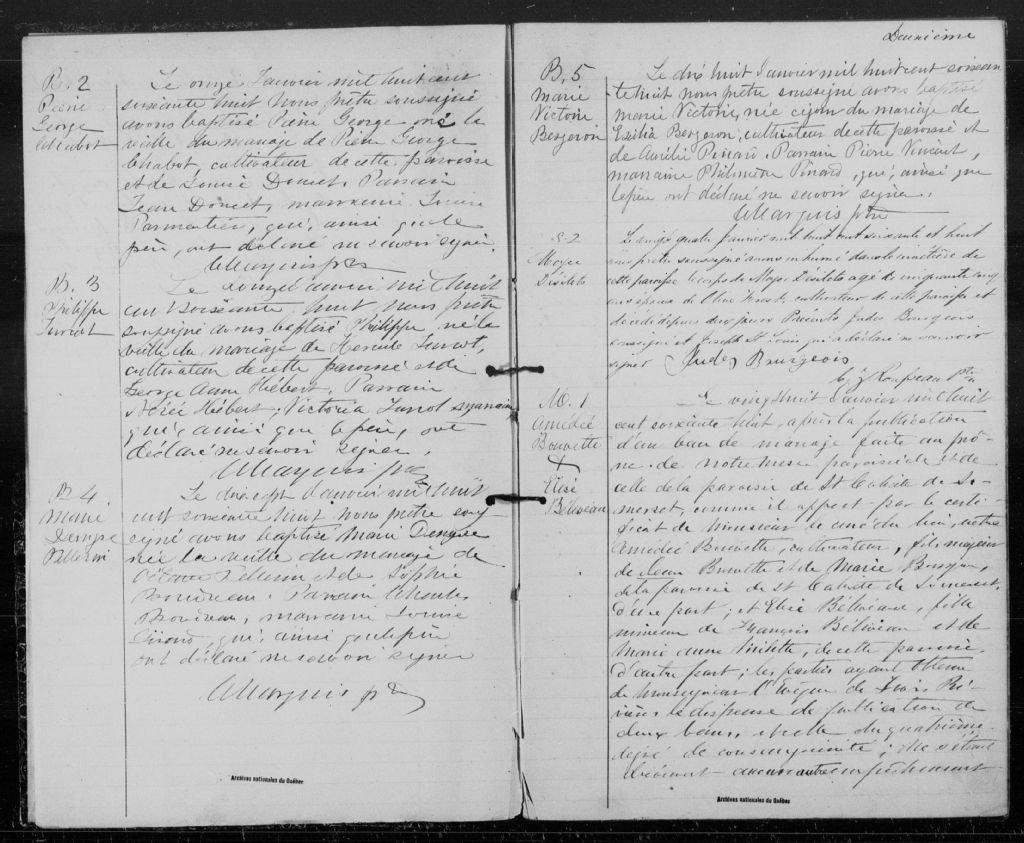 B. 2
Pierre
George
Chabot
Le onze Janvier mil huit cent
soixante huit Nous prêtre soussigné
avons baptisé Pierre George né la
veille du mariage de Pierre George
Chabot, cultivateur de cette paroisse
et de Louise Doucet. Parrain
Jean Doucet, marraine Louise
Parmentier, qui, ainsi que le
père, ont déclaré ne savoir signer.
CMarquis ptre
B. 3
Philippe
Turcot
Le douze Janvier mil huit
cent soixante huit Nous prêtre
soussigné avons baptisé Philippe, né la
veille du mariage de Hercule Turcot,
cultivateur de cette paroisse et de
George Anne Hébert. Parrain
Hébert, Victoria Turcot marraine
qui, ainsi que le père, ont
déclaré ne savoir signer.
CMarquis ptre
B. 4
Marie
Pellerin
Le dix sept Janvier mil huit
cent soixante huit Nous prêtre sous
signé avons baptisé Marie
née la veille du mariage de
Pellerin et de Sophie
Parrain Charles
marraine Louise
qui, ainsi que le père
ont déclaré ne savoir signer
CMarquis ptre
Archives nationales du Québec
Deuxième
B. 5
Marie
Victoire
Bergeron
Le dix huit Janvier mil huit cent soixan
te huit Nous prêtre soussigné avons baptisé
Marie Victoire, née du mariage de
Bergeron, cultivateur de cette paroisse et
de Aurélie Pinard. Parrain Pierre Vincent,
marraine Philomène Pinard, qui, ainsi que
le père ont déclaré ne savoir signer.
CMarquis ptre
S. 2
Moyse
Désilets
Le vingt quatre janvier mil huit cent soixante et huit
nous prêtre soussigné avons inhumé dans le cimetière de
cette paroisse le corps de Moyse Désilets agé de cinquante cinq
ans époux de cultivateur de cette paroisse et
décédé depuis deux jours Présents Judes Bourgeois
soussigné et Joseph St Louis qui a déclaré ne savoir
signer Judes Bourgeois
Ptre
M. 1
Amédée
Bouvette
+
Elisé
Béliveau
Le vingt huit Janvier mil huit
cent soixante huit, après la publication
d'un ban de mariage faite au prô-
ne de notre messe paroissiale et de
celle de la paroisse de St Calixte de So-
merset, comme il appert par le certi-
ficat de Monsieur le curé du lieu, entre
Amédée Bouvette, cultivateur, fils majeur
de Bouvette et de Marie
de la paroisse de St Calixte de Somerset,
d'une part; et Elisé Béliveau, fille
mineure de François Béliveau et de
Marie Anne de cette paroisse
d'autre part; les parties ayant obtenu
de Monseigneur l'Evêque de Trois Ri-
vières la dispense de publication de
deux bans, et celle du quatrième
degré de consanguinité; Ne s'étant
découvert aucun autre empêchement
Archives nationales du Québec